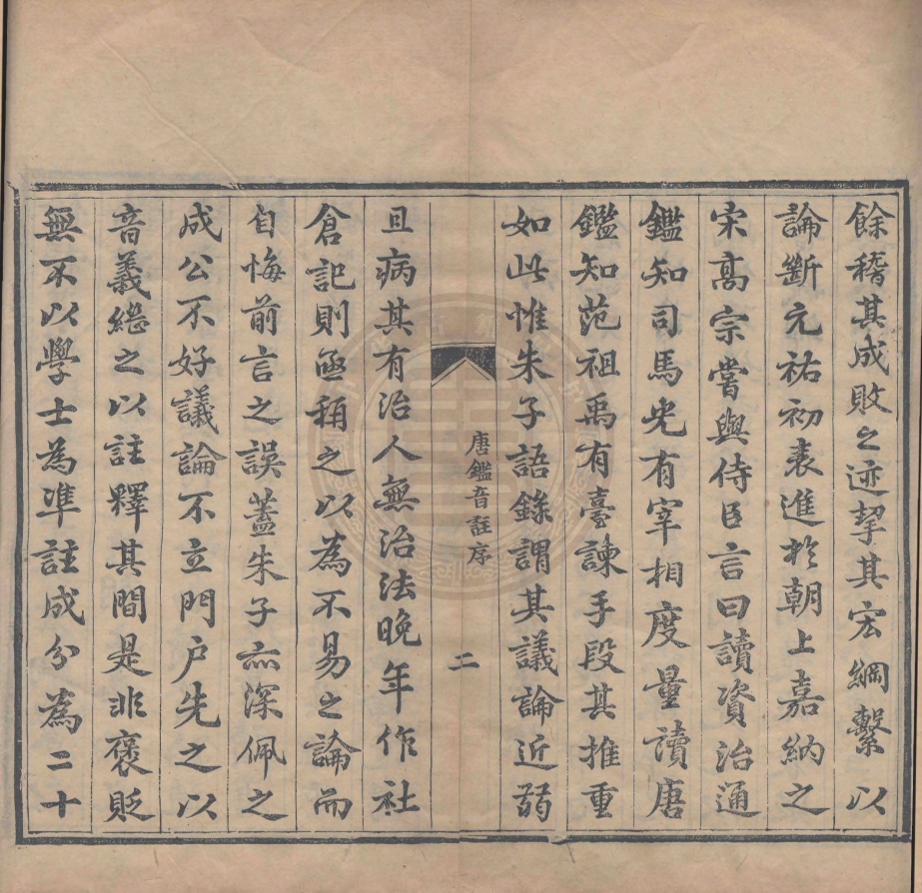 餘稽其成敗之迹挈其宏綱繫以
論斷元祐初表進於朝上嘉納之
宋高宗嘗與侍臣言曰讀資治通
鑑知司馬光有宰相度量讀唐
鑑知范祖禹有臺諫手段其推重
如此惟朱子語錄謂其議論近弱
唐鑑音註序
二
且病其有治人無治法晚年作社
倉記則亟稱之以為不易之論而
自悔前言之誤蓋朱子亦深佩之
成公不好議論不立門户先之以
音義繼之以註釋其間是非褒貶
無不以學士為準註成分為二十